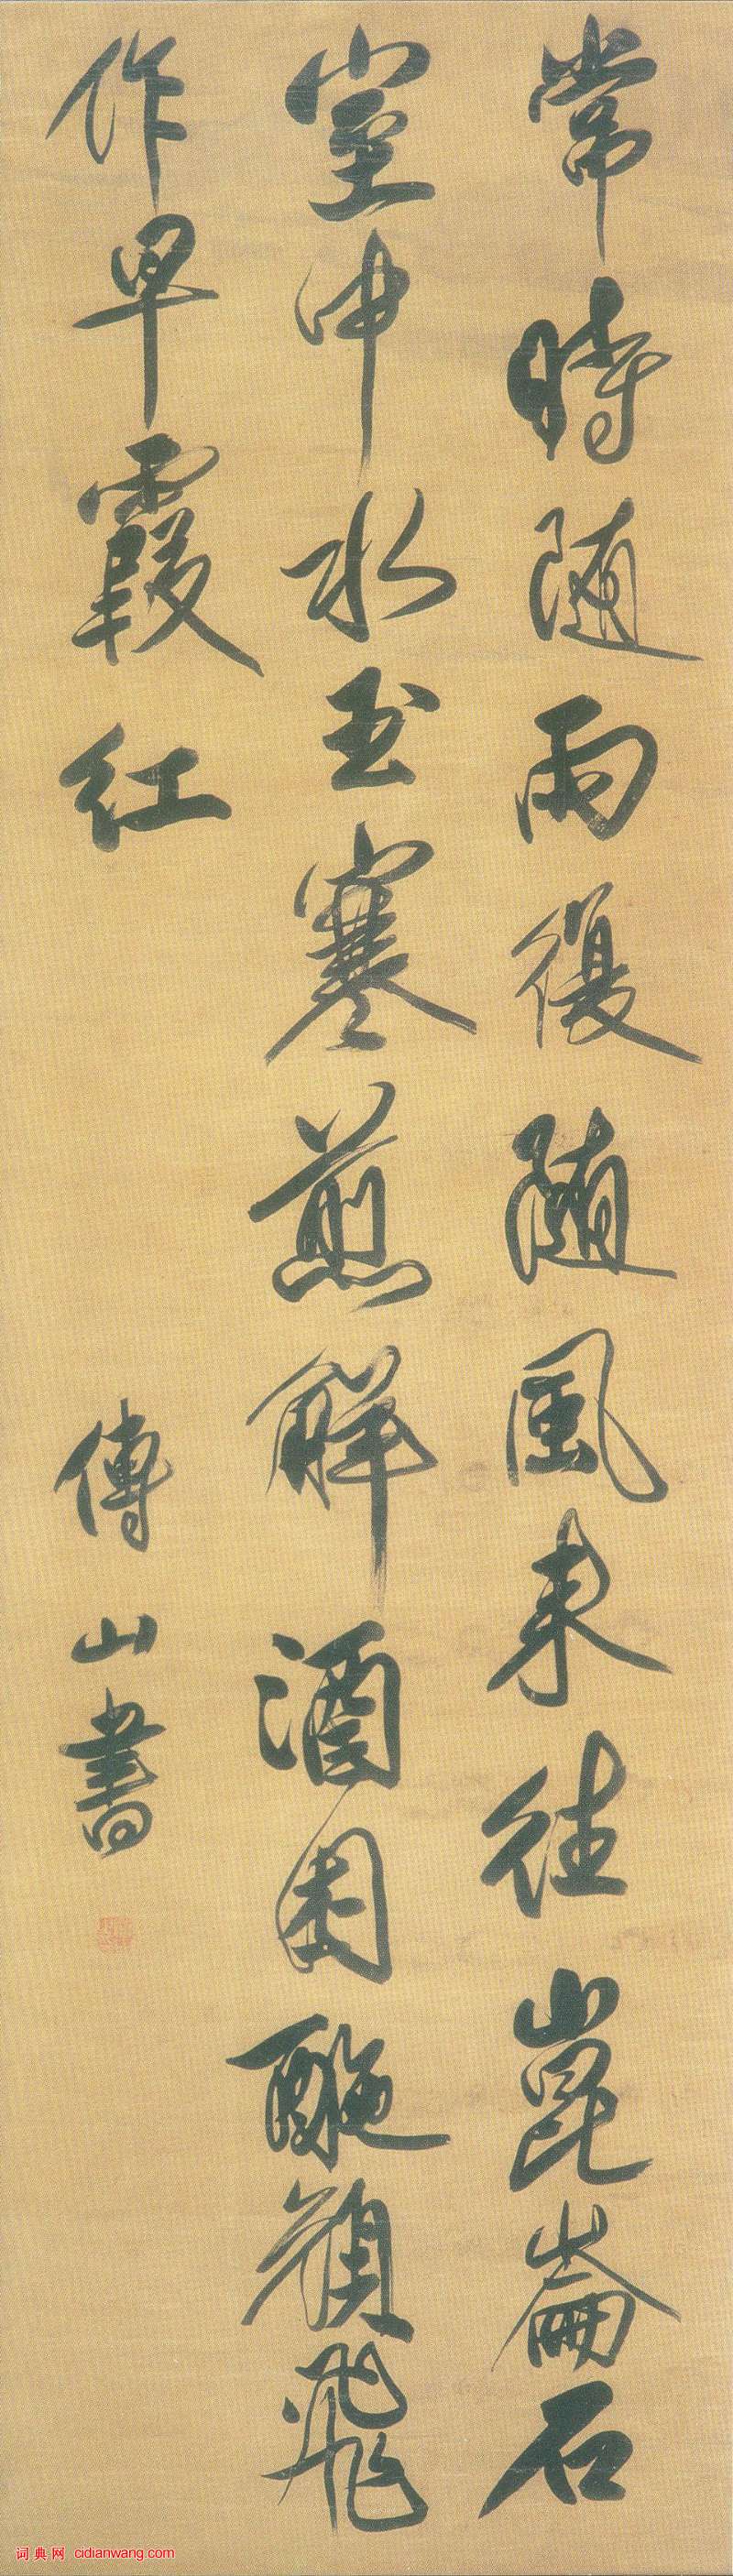 常時随雨復随風来往崑崙石
室中水玉寒煎解酒困酡顔飛
作早霞紅
傅山書
词典网 cidianwang.com